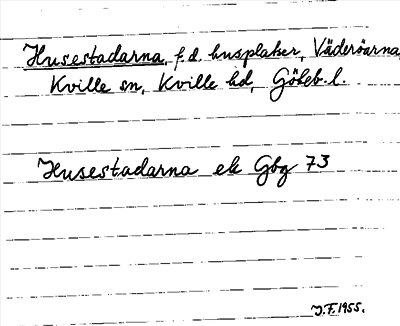 Husestadarna, f.d. husplatser, Väderöarna,
Kville sn, Kville hd, Göteb. l.
Husestadarna ek Gbg 73
J.F. 1955.